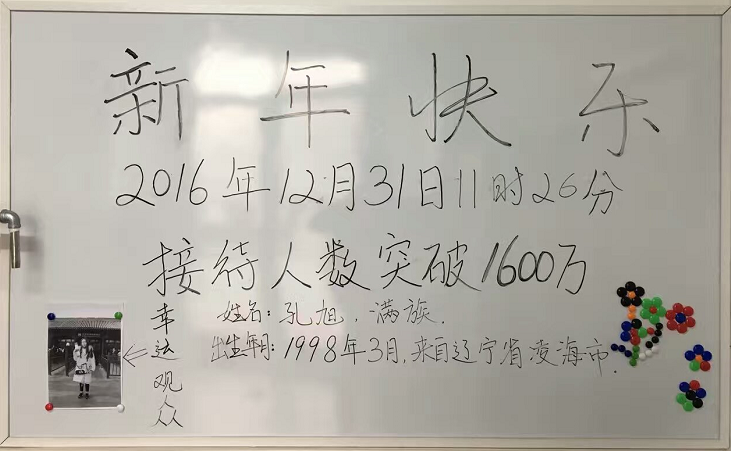 新年快乐
2016年12月31日11时26分
接待人数突破1600万
幸运观众
姓名:孔旭,满族.
出生年月:1998年3月,来自辽宁省凌海市.